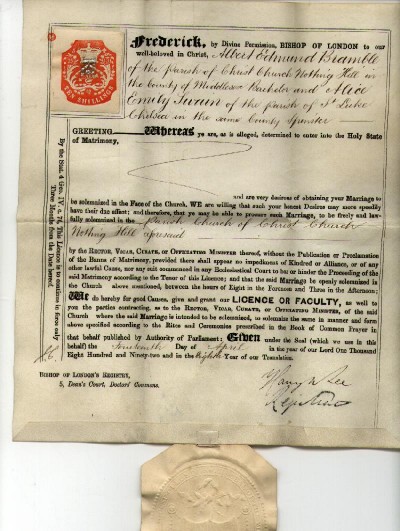 Frederick, by Divine Permission, BISHOP OF LONDON to our
well-beloved in Christ, Albert Edmund Bramble
of the parish of Christ Church Notting Hill in
the County of Middlesex Bachelor and Alice
Emily Swain of the parish of St Luke
Chelsea in the same County Spinster
GREETING Whereas ye are, as is alleged, determined to enter into the Holy State
of Matrimony,
and are very desirous of obtaining your Marriage to
be solemnized in the Face of the Church. WE are willing that such your honest Desires may more speedily
have their due effect; and therefore, that ye may be able to procure such Marriage, to be freely and law-
fully solemnized in the Parish Church of Christ Church
Notting Hill aforesaid
by the RECTOR, VICAR, CURATE, OR OFFICIATING MINISTER thereof, without the Publication or Proclamation
of the Banns of Matrimony, provided there shall appear no impediment of Kindred or Alliance, or of any
other lawful Cause, nor any suit commenced in any Ecclesiastical Court to bar or hinder the Proceeding of the
said Matrimony according to the Tenour of this Licence; and that the said Marriage be openly solemnized in
the Church above mentioned, between the hours of Eight in the Forenoon and Three in the Afternoon;
We do hereby for good Causes, give and grant our LICENCE OR FACULTY, as well to
you the parties contracting, as to the RECTOR, VICAR, CURATE, OR OFFICIATING MINISTER, of the said
Church where the said Marriage is intended to be solemnized, to solemnize the same in manner and form
above specified according to the Rites and Ceremonies prescribed in the Book of Common Prayer in
that behalf published by Authority of Parliament: Given under the Seal (which we use in this
behalf) the Day of April in the year of our Lord One Thousand
Eight Hundred and Ninety-two and in the Eighth Year of our Translation.
BISHOP OF LONDON'S REGISTRY,
5, Dean's Court, Doctors' Commons.
Harry W Lee
Registrar
By the Stat. 4 Geo. IV. c. 76, This Licence is to continue in force only
Three Months from the Date hereof
TEN SHILLINGS